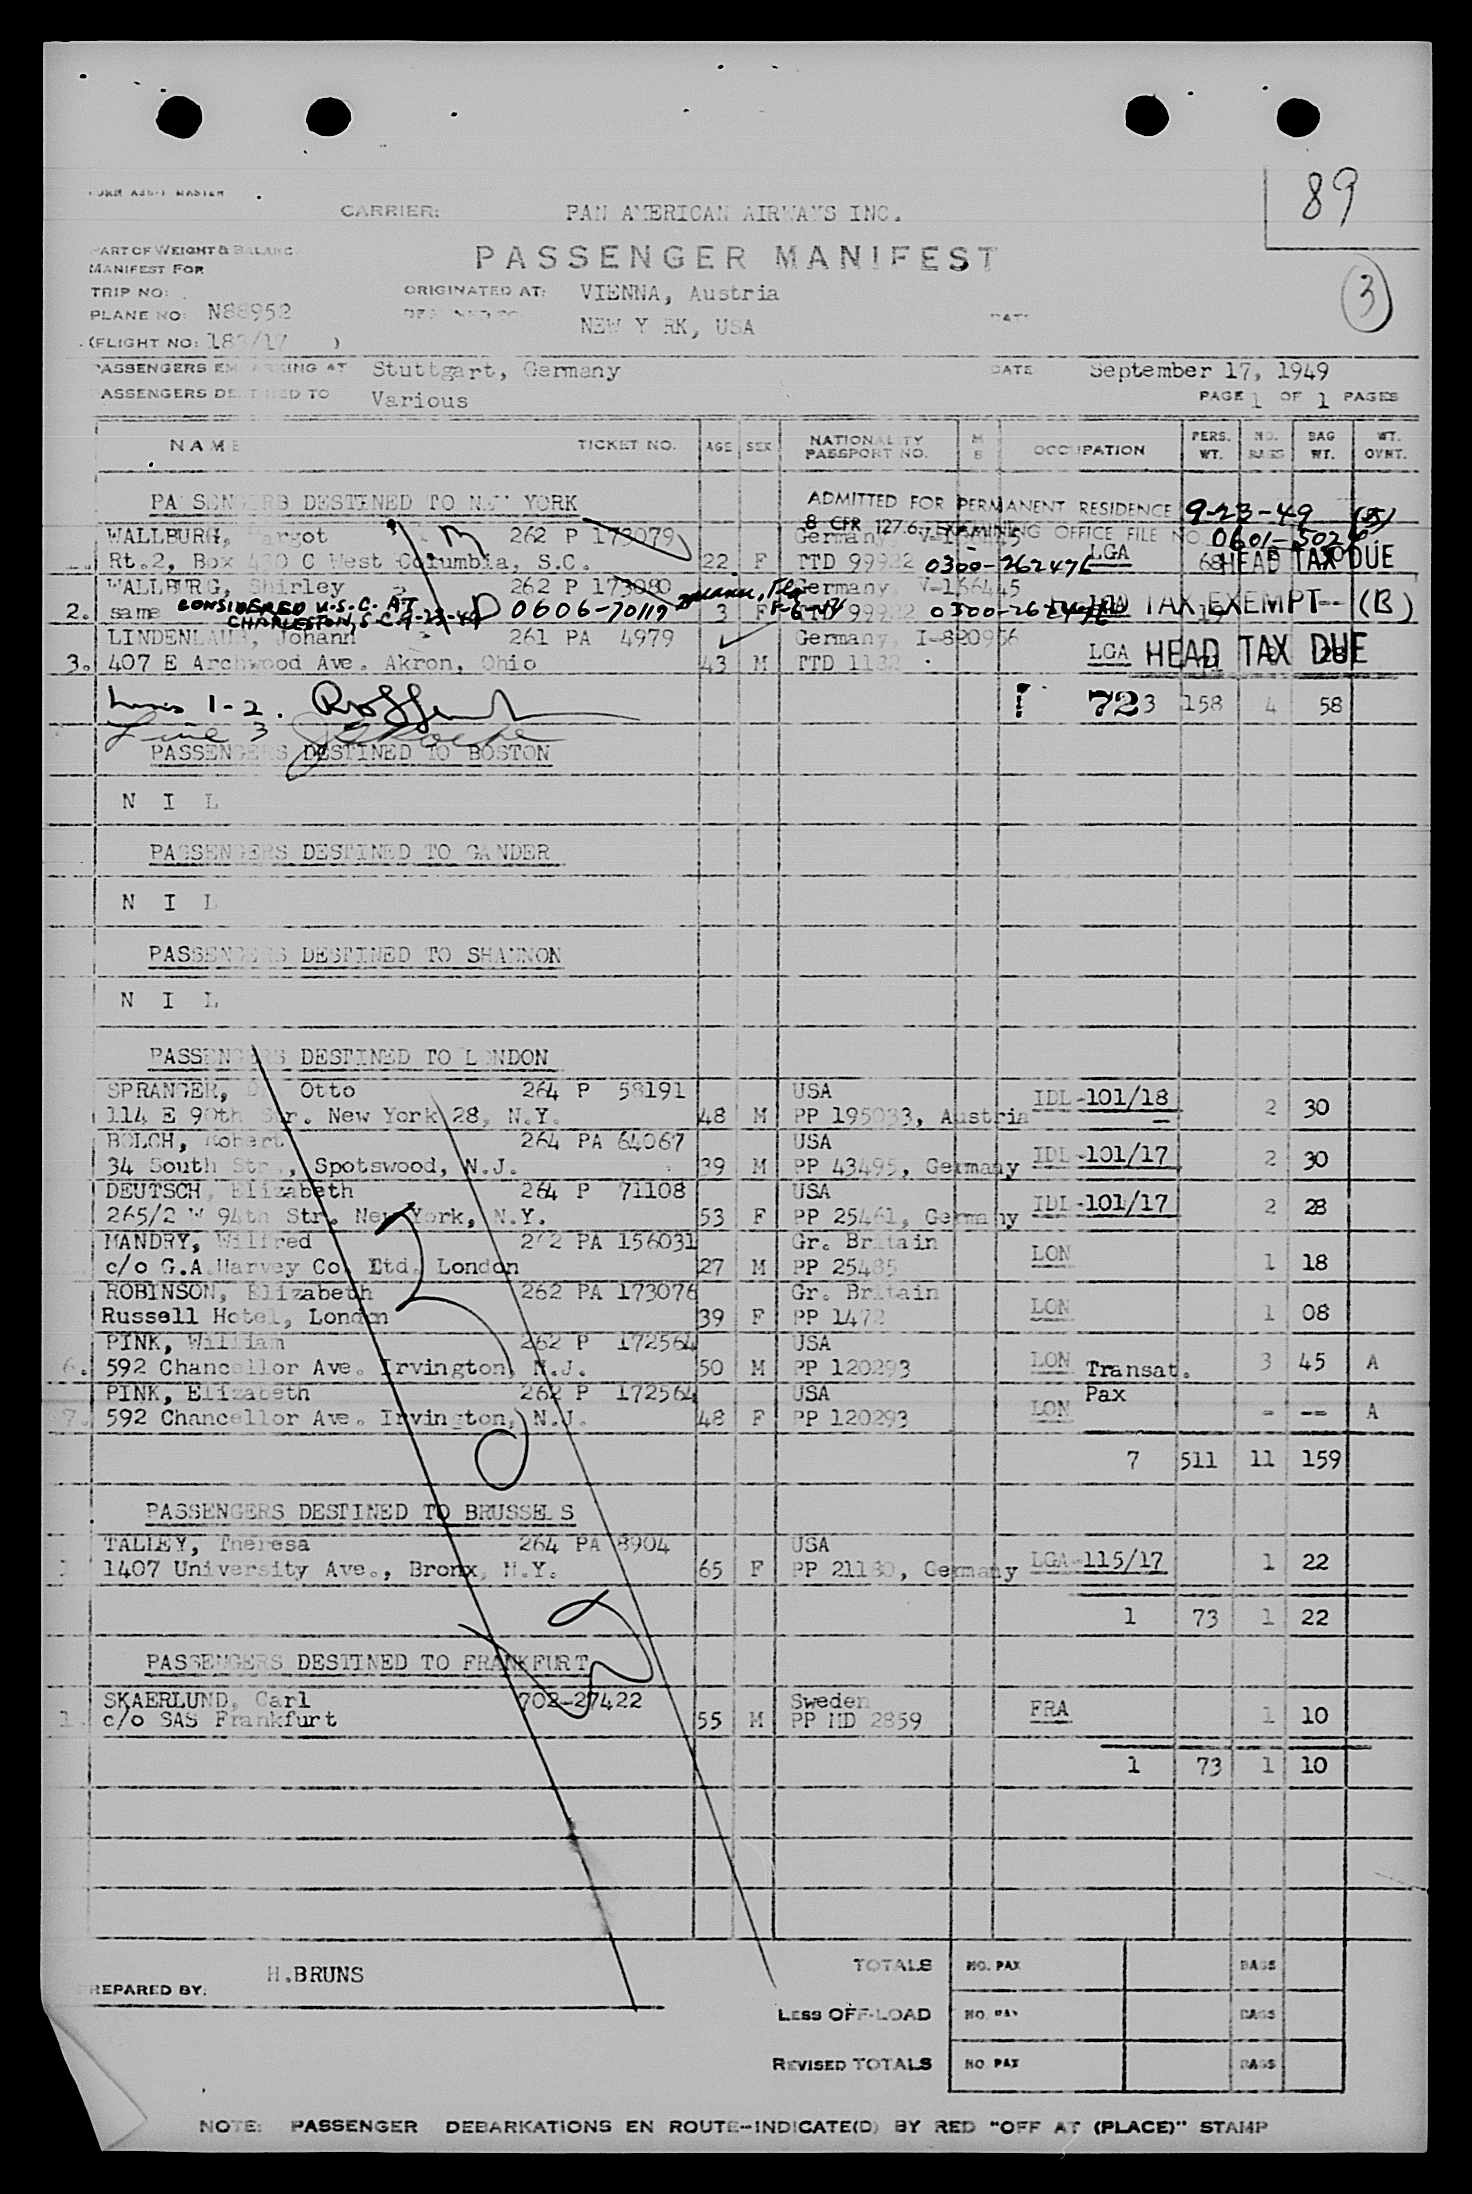 89
FORM
CARRIER: PAN AMERICAN AIRWAYS INC.
PART OF WEIGHT & BALANC
PASSENGER MANIFEST
MANIFEST FOR
3
TRIP NO:
ORIGINATED AT: VIENNA, Austria
PLANE NO: N88952
NEW Y RK, USA
DATE
(FLIGHT NO: /17 )
PASSENGERS EMBARKING AT Stuttgart, Germany DATE September 17, 1949
PASSENGERS DESTINED TO Various PAGE 1 OF 1 PAGES
NAME TICKET NO. AGE SEX NATIONALITY PASSPORT NO. OCCUPATION PERS. WT. NO. BAGS BAG WT. WT. OVNT.
PASSENGERS DESTINED TO NEW YORK
ADMITTED FOR PERMANENT RESIDENCE 9-23-49 (B)
8 CFR 127.6. EXAMINING OFFICE FILE NO. 0601-
WALLBURG, Margot 262 P 173079 Germany
Rt.2, Box C West Columbia, S.C. 22 F TTD 99922 0300-262476 LGA 68 HEAD TAX DUE
WALLBURG, Shirley 262 P 173080 Germany V-166445
2. same CONSIDERED U.S.C. AT CHARLESTON, S.C. 9-23-49 0606-70119 3 F TTD 99922 TAX EXEMPT (B)
LINDENLAUB, Johann 261 PA 4979 Germany, I-820956
3. 407 E Archwood Ave. Akron, Ohio 43 M TTD LGA HEAD TAX DUE
Lines 1-2.
723 158 4 58
Line 3
PASSENGERS DESTINED TO BOSTON
N I L
PASSENGERS DESTINED TO GANDER
N I L
PASSENGERS DESTINED TO SHANNON
N I L
PASSENGERS DESTINED TO LONDON
SPRANGER, Otto 264 P 58191 USA
114 E 90th Str. New York 28, N.Y. 48 M PP 195033, Austria IDL-101/18 2 30
BOLCH, Robert 264 PA 64067 USA
34 South Str., Spotswood, N.J. 39 M PP 43495, Germany IDL-101/17 2 30
DEUTSCH, Elizabeth 264 P 71108 USA
265/2 W 94th Str. New York, N.Y. 53 F PP 25461, Germany IDL-101/17 2 28
MANDRY, Wilfred 262 PA 156031 Gr. Britain
c/o G.A.Harvey Co. Ltd. London 27 M PP 25485 LON 1 18
ROBINSON, Elizabeth 262 PA 173076 Gr. Britain
Russell Hotel, London 39 F PP 1472 LON 1 08
PINK, William 262 P 172564 USA
6. 592 Chancellor Ave. Irvington, N.J. 50 M PP 120293 LON Transat. 3 45 A
PINK, Elizabeth 262 P 172564 USA Pax
7. 592 Chancellor Ave. Irvington, N.J. 48 F PP 120293 LON - -- A
7 511 11 159
PASSENGERS DESTINED TO BRUSSELS
TALLEY, Theresa 264 PA 8904 USA
1 1407 University Ave., Bronx, N.Y. 65 F PP 21180, Germany LGA-115/17 1 22
1 73 1 22
PASSENGERS DESTINED TO FRANKFURT
SKAERLUND, Carl 702-27422 Sweden
1. c/o SAS Frankfurt 55 M PP HD 2859 FRA 1 10
1 73 1 10
PREPARED BY: H.BRUNS
TOTALS NO. PAX BAGS
LESS OFF-LOAD NO. PAX BAGS
REVISED TOTALS NO PAX BAGS
NOTE: PASSENGER DEBARKATIONS EN ROUTE--INDICATE(D) BY RED "OFF AT (PLACE)" STAMP